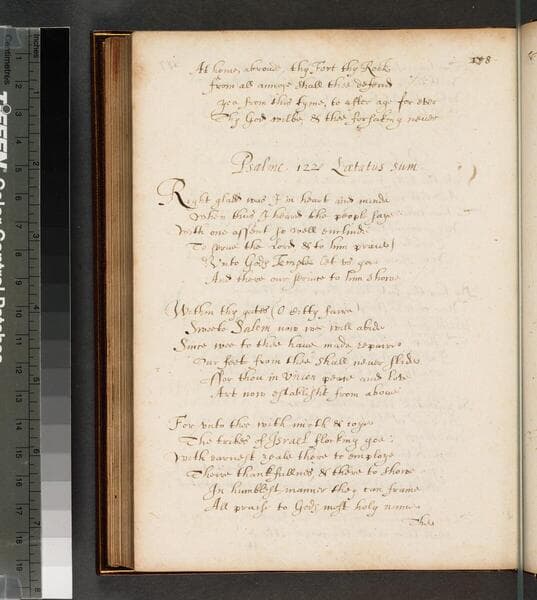 138.
At home, abroad, thy Fort thy Rock
from all annoye shall thee defend
yea from this tyme, to after age for ever
Thy God wilbe, & thee forsaking never
Psalme. 122 Lætatus sum.
Right gladd was I in heart and minde
When thus I heard the people saye
With one assent so well enclinde
To serve the Lord & to him praye
Unto Gods Temple let us goe
And there our service to him showe
Within thy gates (O Citty faire)
Sweete Salem now we will abide
Since wee to thee have made repaire
Our feet from thee shall never slide
ffor thou in Union peace and love
Art now establisht from above
For unto thee with mirth & joye
The tribes of Israel flocking goe:
With earnest zeale there to employe
Theire thankfullnes, & there to showe
In humblest manner they can frame
All praise to Gods most holy name.
The
Centimetres
Inches
TIFFEN
Color Control Patches